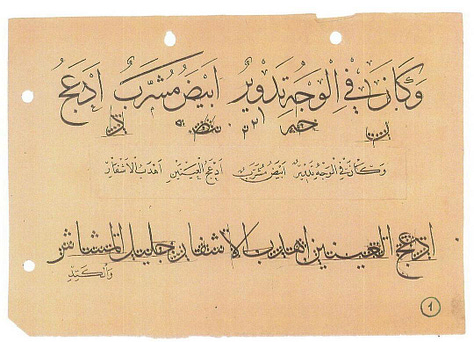 وَكَانَ فِي الْوَجْهِ تَدْوِيرٌ اَبْيَضُ مُشْرَبٌ اَدْعَجُ
وَكَانَ فِي الْوَجْهِ تَدْوِيرٌ اَبْيَضُ مُشْرَبٌ اَدْعَجُ الْعَيْنَيْنِ اَهْدَبُ الْاَشْفَارِ
ادعج العينين اهدب الاشفار جليل المشاش
وَالْكَتَدِ
١